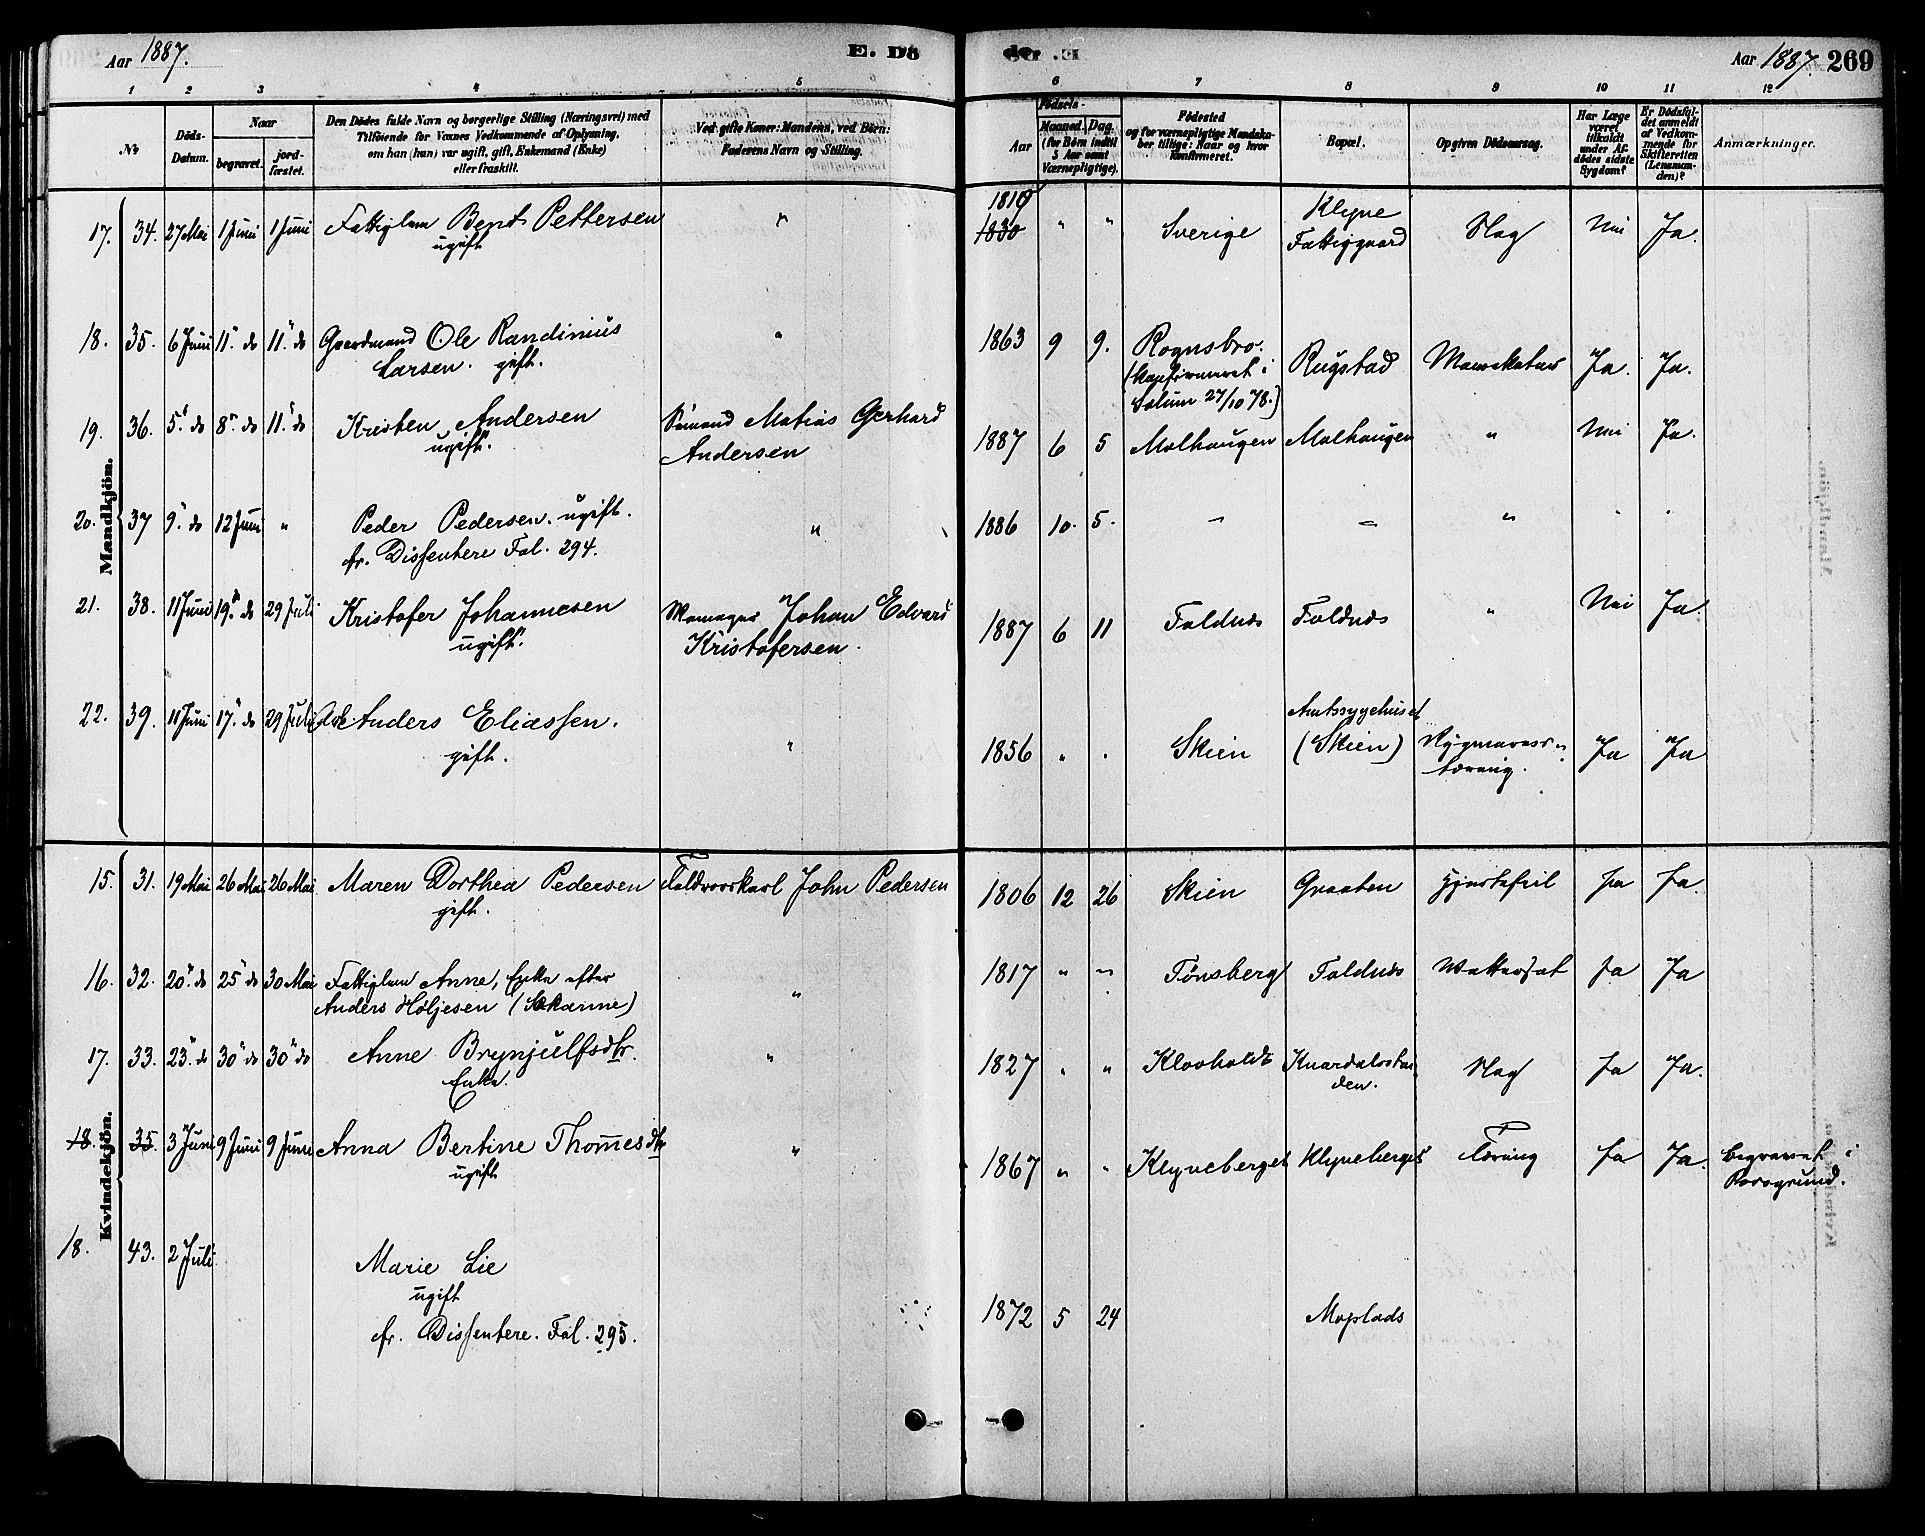 Aar 1887.
E. Dö
Aar 1887.
269
1 2 3 4 5 6 7 8 9 10 11 12
No
Döds-
Datum.
Naar
begravet.
jord-
fæstet.
Den Dödes fulde Navn og borgerlige Stilling (Næringsvei) med
Tilföiende for Voxnes Vedkommende af Oplysning,
om han (hun) var ugift, gift, Enkemand (Enke)
eller fraskilt.
Ved gifte Koner: Mandens, ved Börn:
Faderens Navn og Stilling.
Födsels-
Aar
Maaned. Dag.
(for Börn indtil
5 Aar samt
Værnepligtige).
Födested
og for værnepligtige Mandska-
ber tillige: Naar og hvor
konfirmeret.
Bopæl.
Opgiven Dödsaarsag.
Har Læge
været
tilkaldt
under Af-
dödes sidste
Sygdom?
Er Dödsfal-
det anmeldt
af Vedkom-
mende for
Skifteretten
(Lensman-
den)?
Anmærkninger.
Mandkjön.
17. 34. 27 Mai 1 Juni 1 Juni Fattiglem Bernt Pettersen
ugift
" 1819
1830 " " Sverige Klyve
Fattiggaard Slag Nei Ja.
18. 35. 6 Juni 11" do 11" do Gaardmand Ole Randinius
Larsen. gift.
" 1863 9 9. Rognsbro.
(konfirmeret i
Solum 27/10 78.)
Rugstad Ja. Ja.
19. 36. 5" do 8" do 11" do Kristen Andersen
ugift.
Sømand Matias Gerhard
Andersen
1887 6 5 Molhaugen Molhaugen " Nei Ja.
20. 37 9" do 12 Juni " Peder Pedersen. ugift.
fr. Dissentere Fol. 294.
" 1886 10. 5. " " " " "
21. 38. 11 Juni 19" do 29 Juli Kristofer Johannesen
ugift.
Skomager Johan Edvard
Kristofersen.
1887 6 11 Foldnes Foldnes " Nei Ja.
22. 39. 11 Juni 17" do 29 Juli Anders Eliassen.
gift.
" 1856 " " Skien Amtssygehuset
(Skien) Rygmarvs-
tæring. Ja Ja
Kvindekjön.
15. 31. 19 Mai 26 Mai 26 Mai Maren Dorthea Pedersen
gift.
John Pedersen
1806 12 26 Skien Graaten Hjertefeil Ja Ja.
16. 32. 20" do 25" do 30 Mai Fattiglem Anne, Enke efter
Anders Høljesen (Skarine)
" 1817 " " Tønsberg Foldnes Wattersot Ja Ja
17. 33. 23" do 30" do 30" do Anne Brynjulfsdtr.
Enke.
" 1827 " " Klovholdt Knardalsstran
den. Slag Ja Ja.
18. 35. 3 Juni 9 Juni 9 Juni Anna Bertine Thomesdtr
ugift
" 1867 " " Klyveberget Klyveberget Tæring Ja Ja. begravet i
Porsgrund.
18. 43. 2 Juli Marie Lie
ugift
fr. Dissentere. Fol. 295.
1872 5 24 Moplads